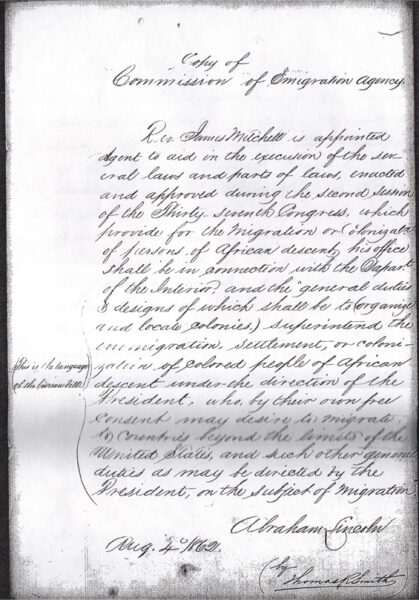 Copy of
Commission of Emigration Agency.
Rev. James Mitchell is appointed
Agent to aid in the execution of the sev-
eral laws and parts of laws, enacted
and approved during the second session
of the Thirty-seventh Congress, which
provide for the Migration or Coloniza
of persons of African descent, his office
shall be in connection with the Depart
of the Interior, and the "general duties
& designs of which shall be to (organize
and locate colonies,) superintend the
immigration, settlement, or coloni-
This is the language
of the bureau bill
zation of colored people of African
descent under the direction of the
President, who, by their own free
consent may desire to migrate
to countries beyond the limits of the
United States, and such other general
duties as may be directed by the
President, on the subject of Migration
Abraham Lincoln
Aug. 4º 1862.
by
Thomas Smith